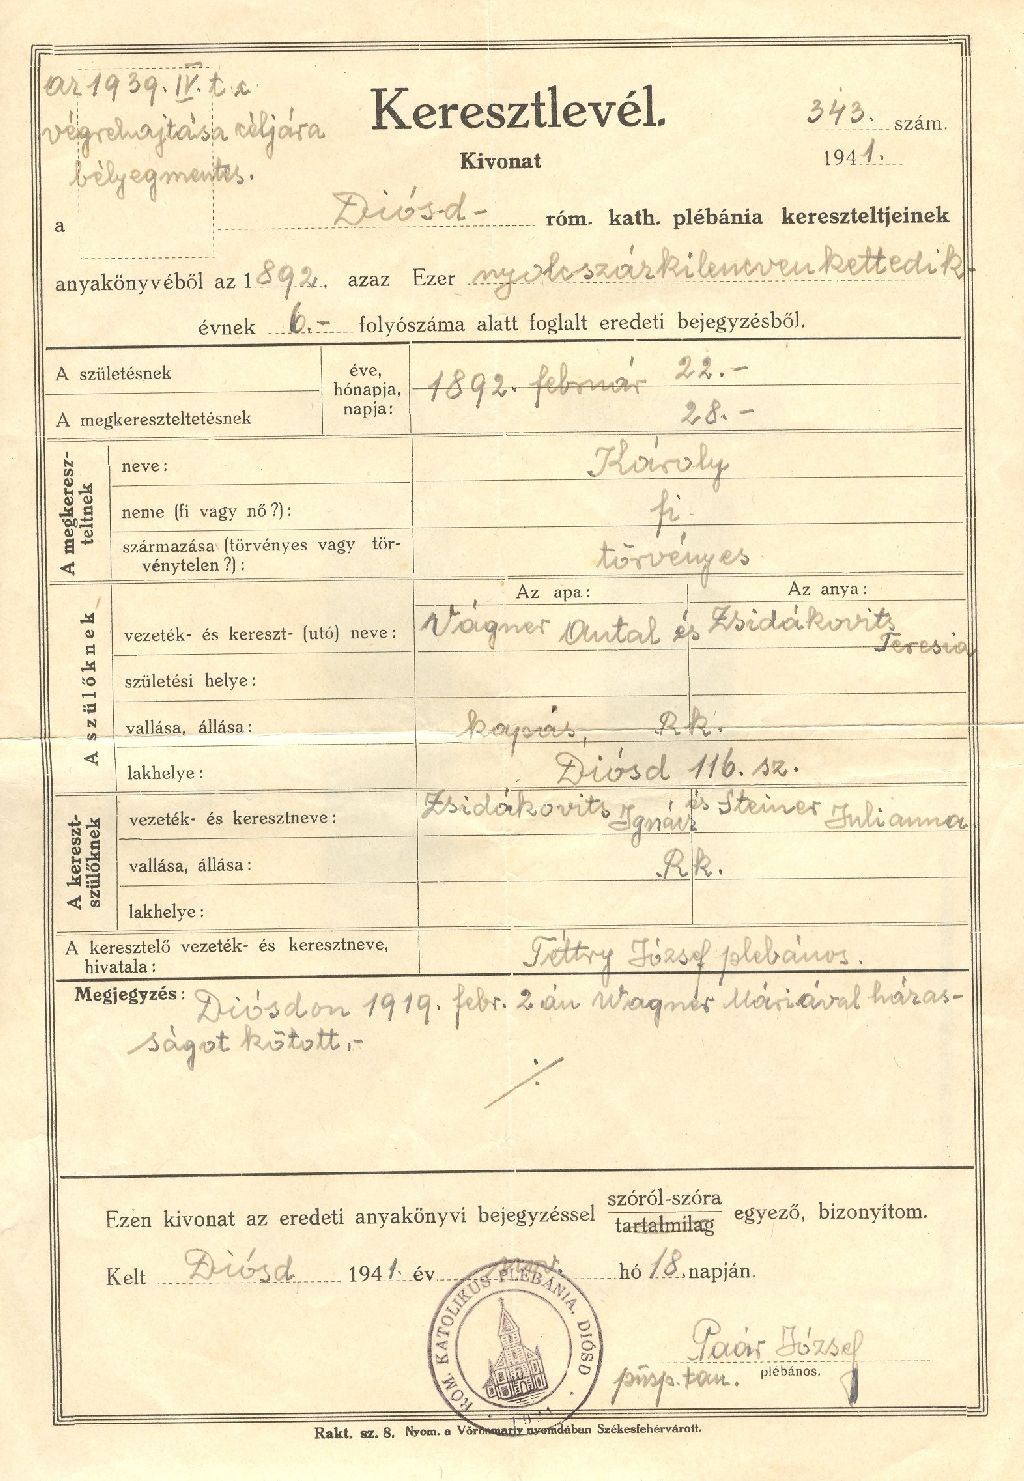 az 1939. IV. t. c.
végrehajtása céljára
bélyegmentes.
Keresztlevél.
343. szám.
Kivonat
1941.
a Diósd - róm. kath. plébánia kereszteltjeinek
anyakönyvéből az 1892. azaz Ezer nyolcszázkilencvenkettedik
évnek 6.- folyószáma alatt foglalt eredeti bejegyzésből.
A születésnek éve, hónapja, napja: 1892. február 22.-
A megkereszteltetésnek 28.-
A megkereszteltnek
neve: Károly
neme (fi vagy nő?): fi.
származása (törvényes vagy törvénytelen?): törvényes
A szülőknek
Az apa: Az anya:
vezeték- és kereszt- (utó) neve: Vágner Antal és Zsidákovits Teresia
születési helye:
vallása, állása: kapás, Rk.
lakhelye: Diósd 116. sz.
A keresztszülőknek
vezeték- és keresztneve: Zsidákovits Ignácz és Steiner Julianna
vallása, állása: Rk.
lakhelye:
A keresztelő vezeték- és keresztneve,
hivatala: Téttry József plebános.
Megjegyzés: Diósdon 1919. febr. 2 án Wagner Máriával házas-
ságot kötött.-
Ezen kivonat az eredeti anyakönyvi bejegyzéssel szóról-szóra tartalmilag egyező, bizonyítom.
Kelt Diósd 1941. év hó 18. napján.
RÓM. KATOLIKUS PLÉBÁNIA, DIÓSD
Paár József
püsp. tan. plébános.
Rakt. sz. 8. Nyom. a Vörösmarty nyomdában Székesfehérvárott.